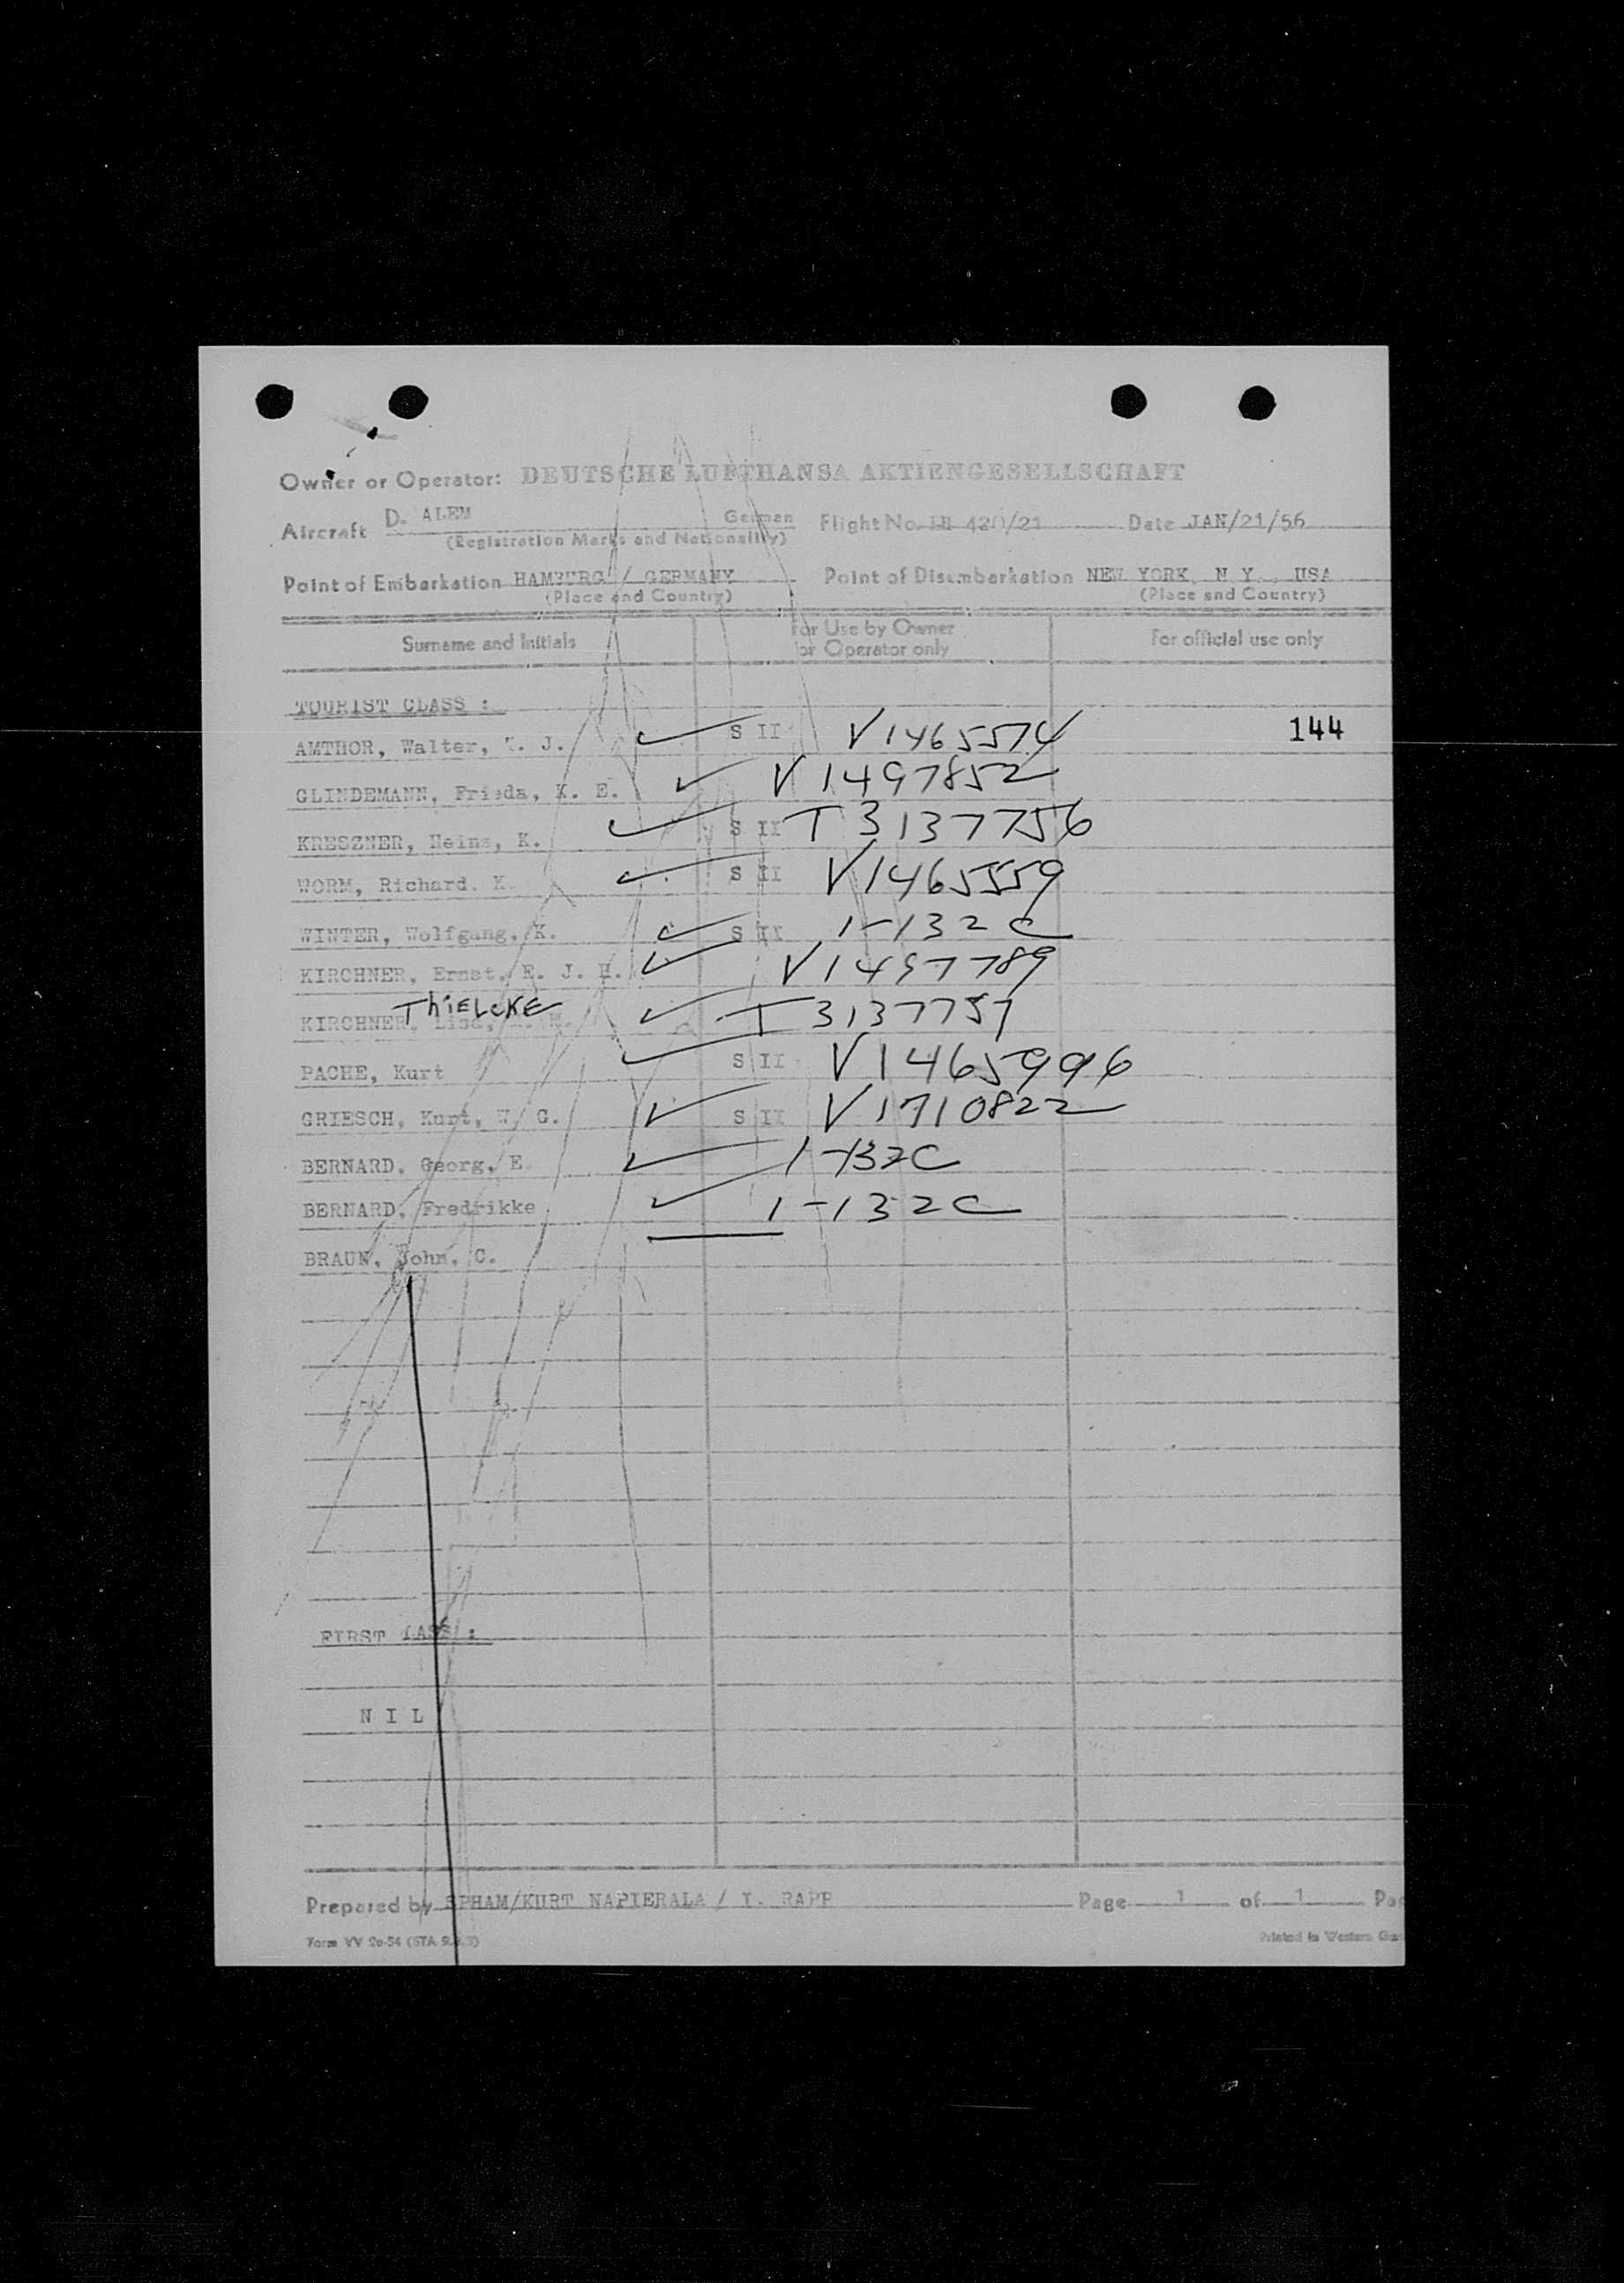 Owner or Operator: DEUTSCHE LUFTHANSA AKTIENGESELLSCHAFT
Aircraft D. ALEM German Flight No. LH 420/21 Date JAN/21/56
(Registration Marks and Nationality)
Point of Embarkation HAMBURG / GERMANY Point of Disembarkation NEW YORK, N.Y., USA
(Place and Country) (Place and Country)
Surname and Initials For Use by Owner or Operator only For official use only
TOURIST CLASS :
AMTHOR, Walter, J. S II V1465574 144
GLINDEMANN, Frieda, K. E. V1497852
KRESZNER, Heinz, K. S II T 3137756
WORM, Richard. K. S II V1465559
WINTER, Wolfgang, K. S II 1-132 C
KIRCHNER, Ernst, E. J. H. V1497789
ThiELCKE
KIRCHNER, Lisa, T 3137757
PACHE, Kurt S II V1465996
GRIESCH, Kurt, W. G. S II V1710822
BERNARD, Georg, E. 1-132C
BERNARD, Fredrikke 1-132C
BRAUN, John, C.
FIRST LASS :
N I L
Prepared by SPHAM/KURT NAPIERALA / I. RAPP Page 1 of 1 Pa
Form VV 20-54 (STA 9. Printed in Western Ger